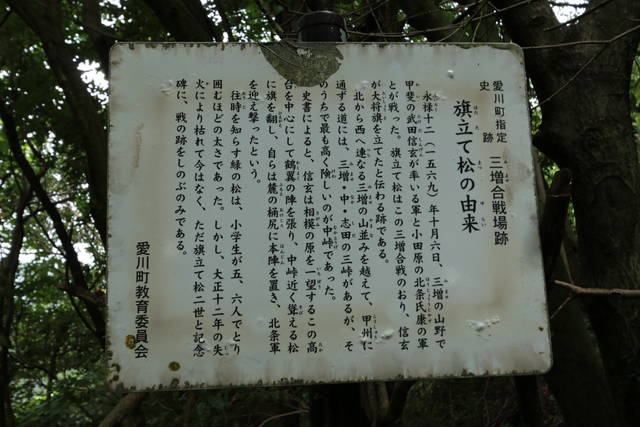 愛川町指定
史跡 三増合戦場跡
旗立て松の由来
永禄十二（一五六九）年十月六日、三増の山野で
甲斐の武田信玄が率いる軍と小田原の北条氏康の軍
とが戦った。旗立て松はこの三増合戦のおり、信玄
が大将旗を立てたと伝わる跡である。
北から西へ連なる三増の山並みを越えて、甲州に
通ずる道には、三増・中・志田の三峠があるが、そ
のうちで最も高く険しいのが中峠であった。
史書によると、信玄は相模の原を一望するこの高
台を中心にして鶴翼の陣を張り、中峠近く聳える松
に旗を翻し、自らは麓の桶尻に本陣を置き、北条軍
を迎え撃ったという。
往時を知らす緑の松は、小学生が五、六人でとり
囲むほどの太さであった。しかし、大正十二年の失
火により枯れて今はなく、ただ旗立て松二世と記念
碑に、戦の跡をしのぶのみである。
愛川町教育委員会